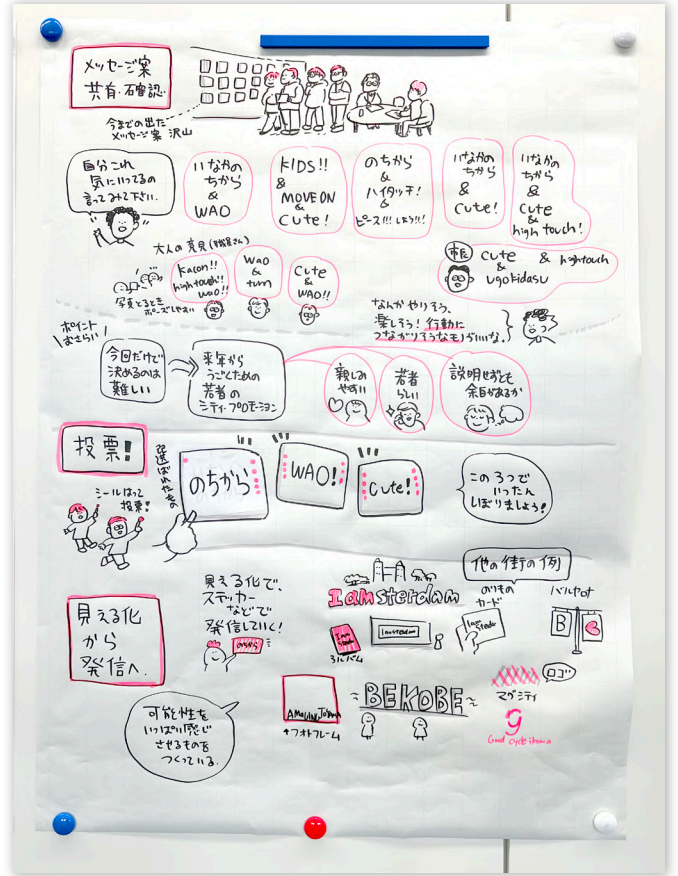 メッセージ案
共有・確認
今までの出た
メッセージ案 沢山
自分これ
気にいってるの
言ってみて下さい。
いなかの
ちから
&
WAO
KIDS!!
&
MOVE ON
&
Cute!
のちから
&
ハイタッチ!
&
ピース!!! しよう!!!
いなかの
ちから
&
Cute!
いなかの
ちから
&
Cute
&
high touch!
大人の意見
Kacon!!
high touch!!
wao!!
Wao
&
turn
Cute
&
WAO!!
写真とるとき
ポーズしやすい
市長
Cute & hightouch
&
ugokidasu
なんかやりそう、
楽しそう! 行動に
つながりそうなモノがいいな。
ポイント
おさらい
今回だけで
決めるのは
難しい
来年から
うごくための
若者の
シティ・プロモーション
親しみ
やすい
若者
らしい
説明せずとも
余白があるか
投票!
シールはって
投票!
選ばれたもの
のちから
WAO!
Cute!
この3つで
いったん
しぼりましょう!
見える化
から
発信へ。
見える化で、
ステッカー
などで
発信していく!
のちから
I amsterdam
I am
アルバム
Iamsterdam
他の街の例
のりもの
カード
I am
sterda
バルセロナ
B
可能性を
いっぱい感じ
させるものを
つくっている。
AMAZING TOYAMA
↑フォトフレーム
BE KOBE
ロゴ
マグシティ
g
Good Cycle ikoma